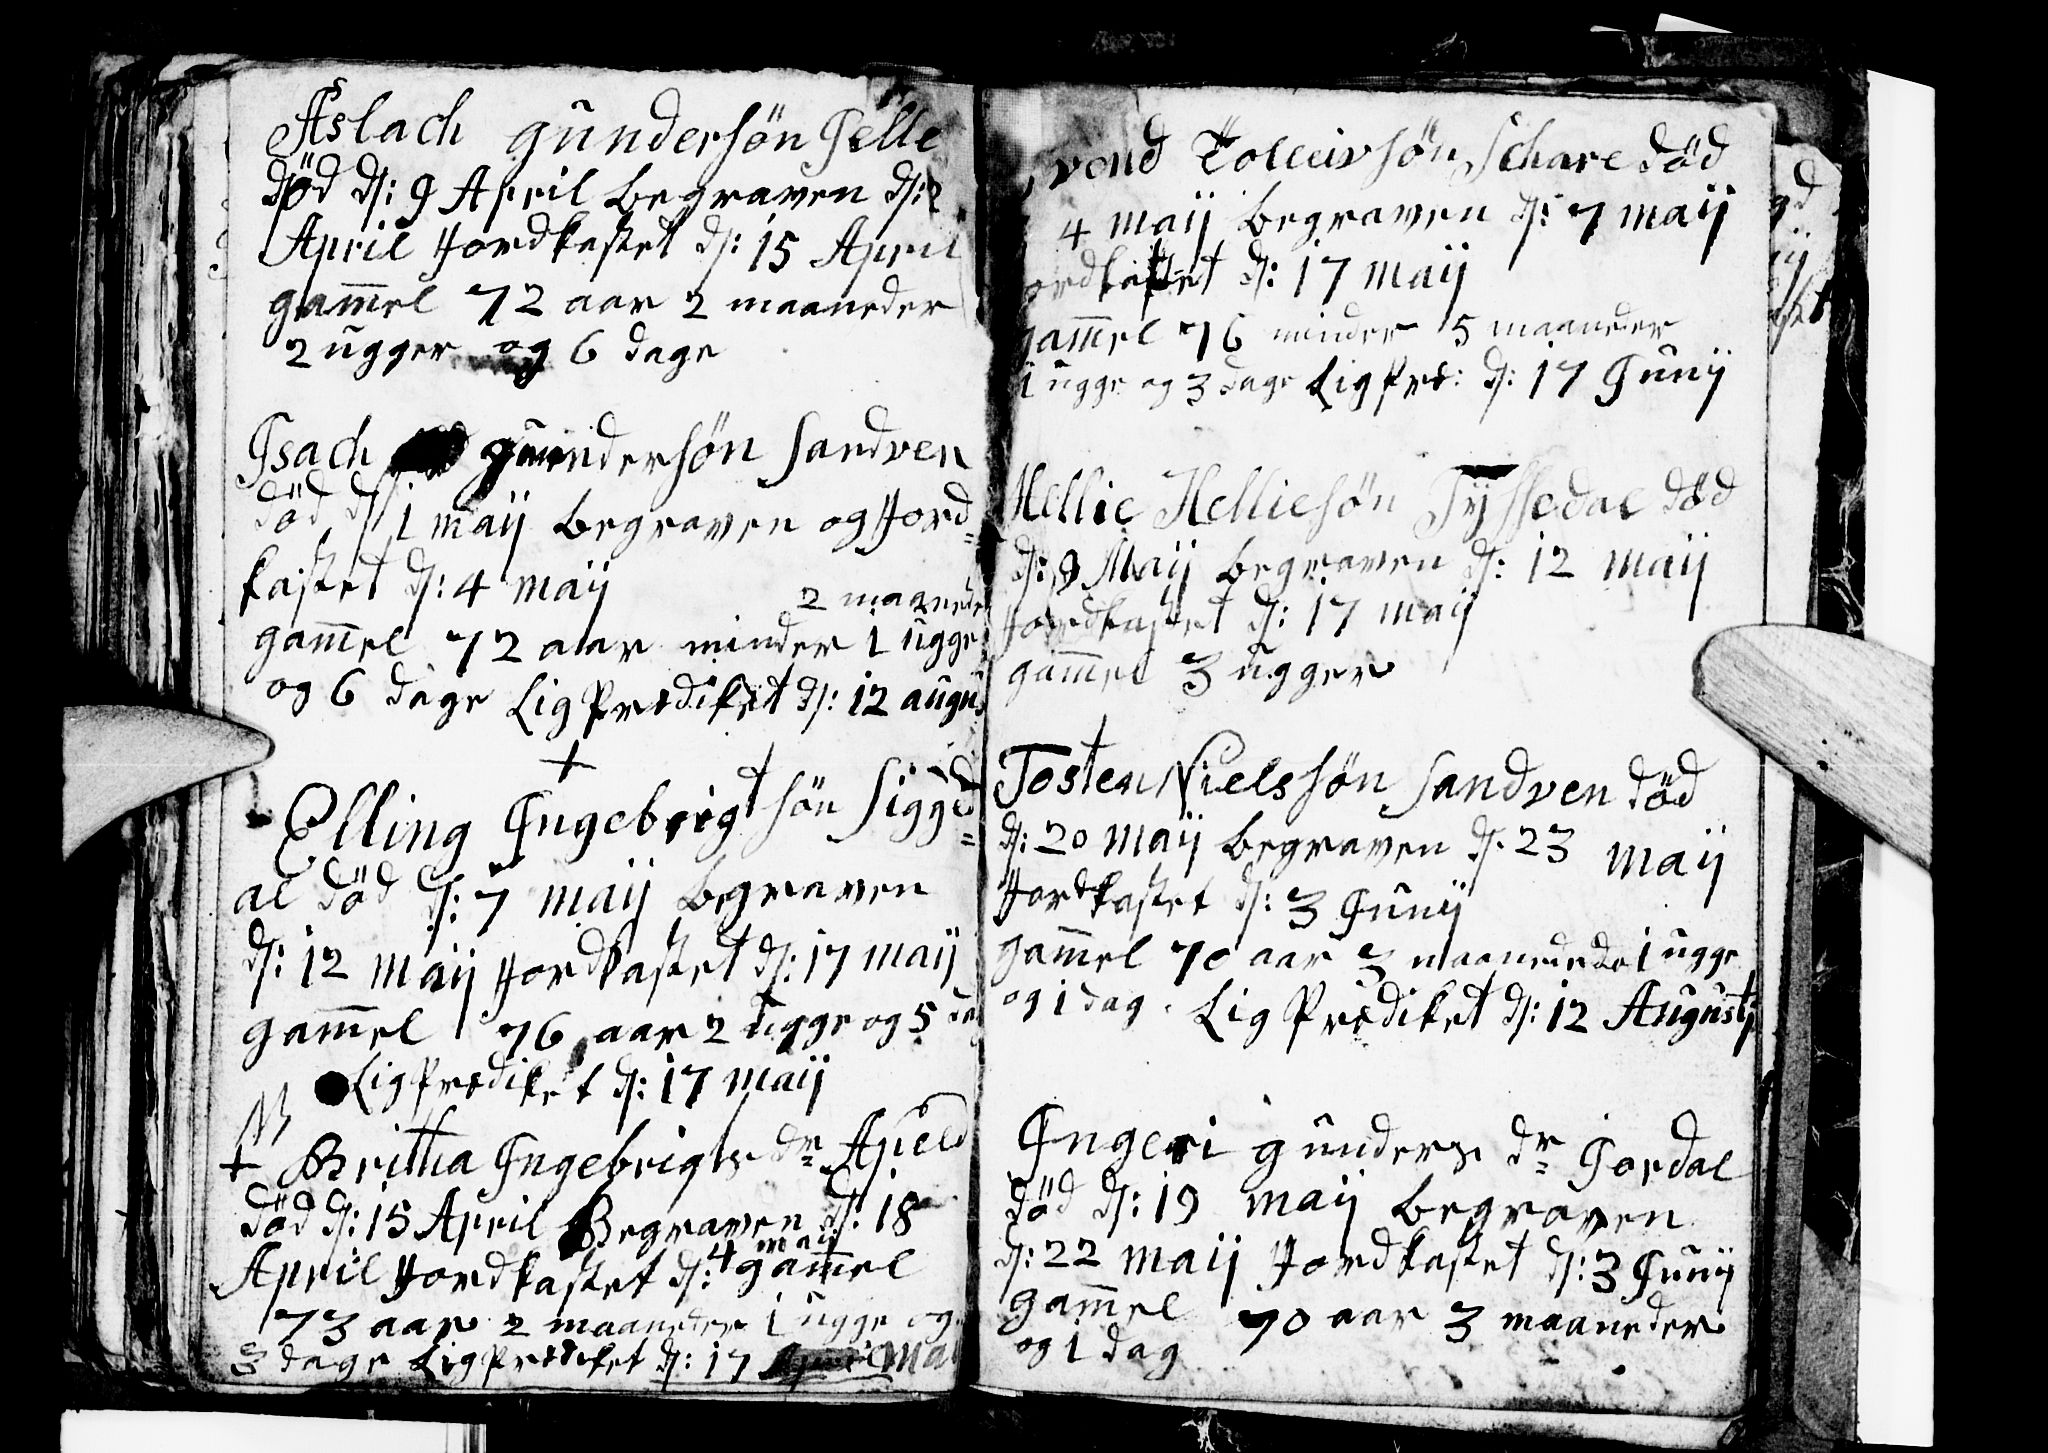 Aslach gundersøn Jelle
død ds: 9 April begraven ds:
April Jordkastet ds: 15 April
gam̄el 72 aar 2 maaneder
2 ugger og 6 dage
Jsach gundersøn Sandven
död ds 1 maij begraven og Jord=
kastet ds: 4 maij
2 maanede
gam̄el 72 aar minder 1 ugge
og 6 dage Lig Prediket ds: 12 augus
+
Elling Jngebrigtsøn Sigge=
al död ds: 7 maij begraven
ds: 12 maij Jordkastet ds: 17 maij
gam̄el 76 aar 2 ugge og 5 dag
Lig Prediket ds: 17 maij
+ Britha Jngebrigts dr Apeld
död ds: 15 April Begraven ds. 18
maij
April Jordkastet ds: 4 gam̄el
73 aar 2 maaneder 1 ugge og
3 dage Lig Prediket ds: 17 Mai
vond Tolleivsøn Schare død
4 maij begraven ds: 7 maij
ordkastet ds: 17 maij
gam̄el 76 minder 5 maaneder
1 ugge og 3 dage Lig Pre: ds: 17 Junij
Hellie Helliesøn Tÿssedal död
ds: 9 Maij begraven ds: 12 maij
Jordkastet ds: 17 maij
gam̄el 3 ugger
Tosten Nielssøn Sandven död
ds: 20 maij begraven ds. 23 maij
Jordkastet ds: 3 Junij
gam̄el 70 aar 3 maanede 1 ugge
og 1 dag. Lig Prediket ds: 12 Augustj
Jngeri gunders dr Jordal
död ds: 19 maij begraven
ds: 22 maij Jordkastet ds: 3 Junij
gam̄el 70 aar 3 maaneder
og 1 dag